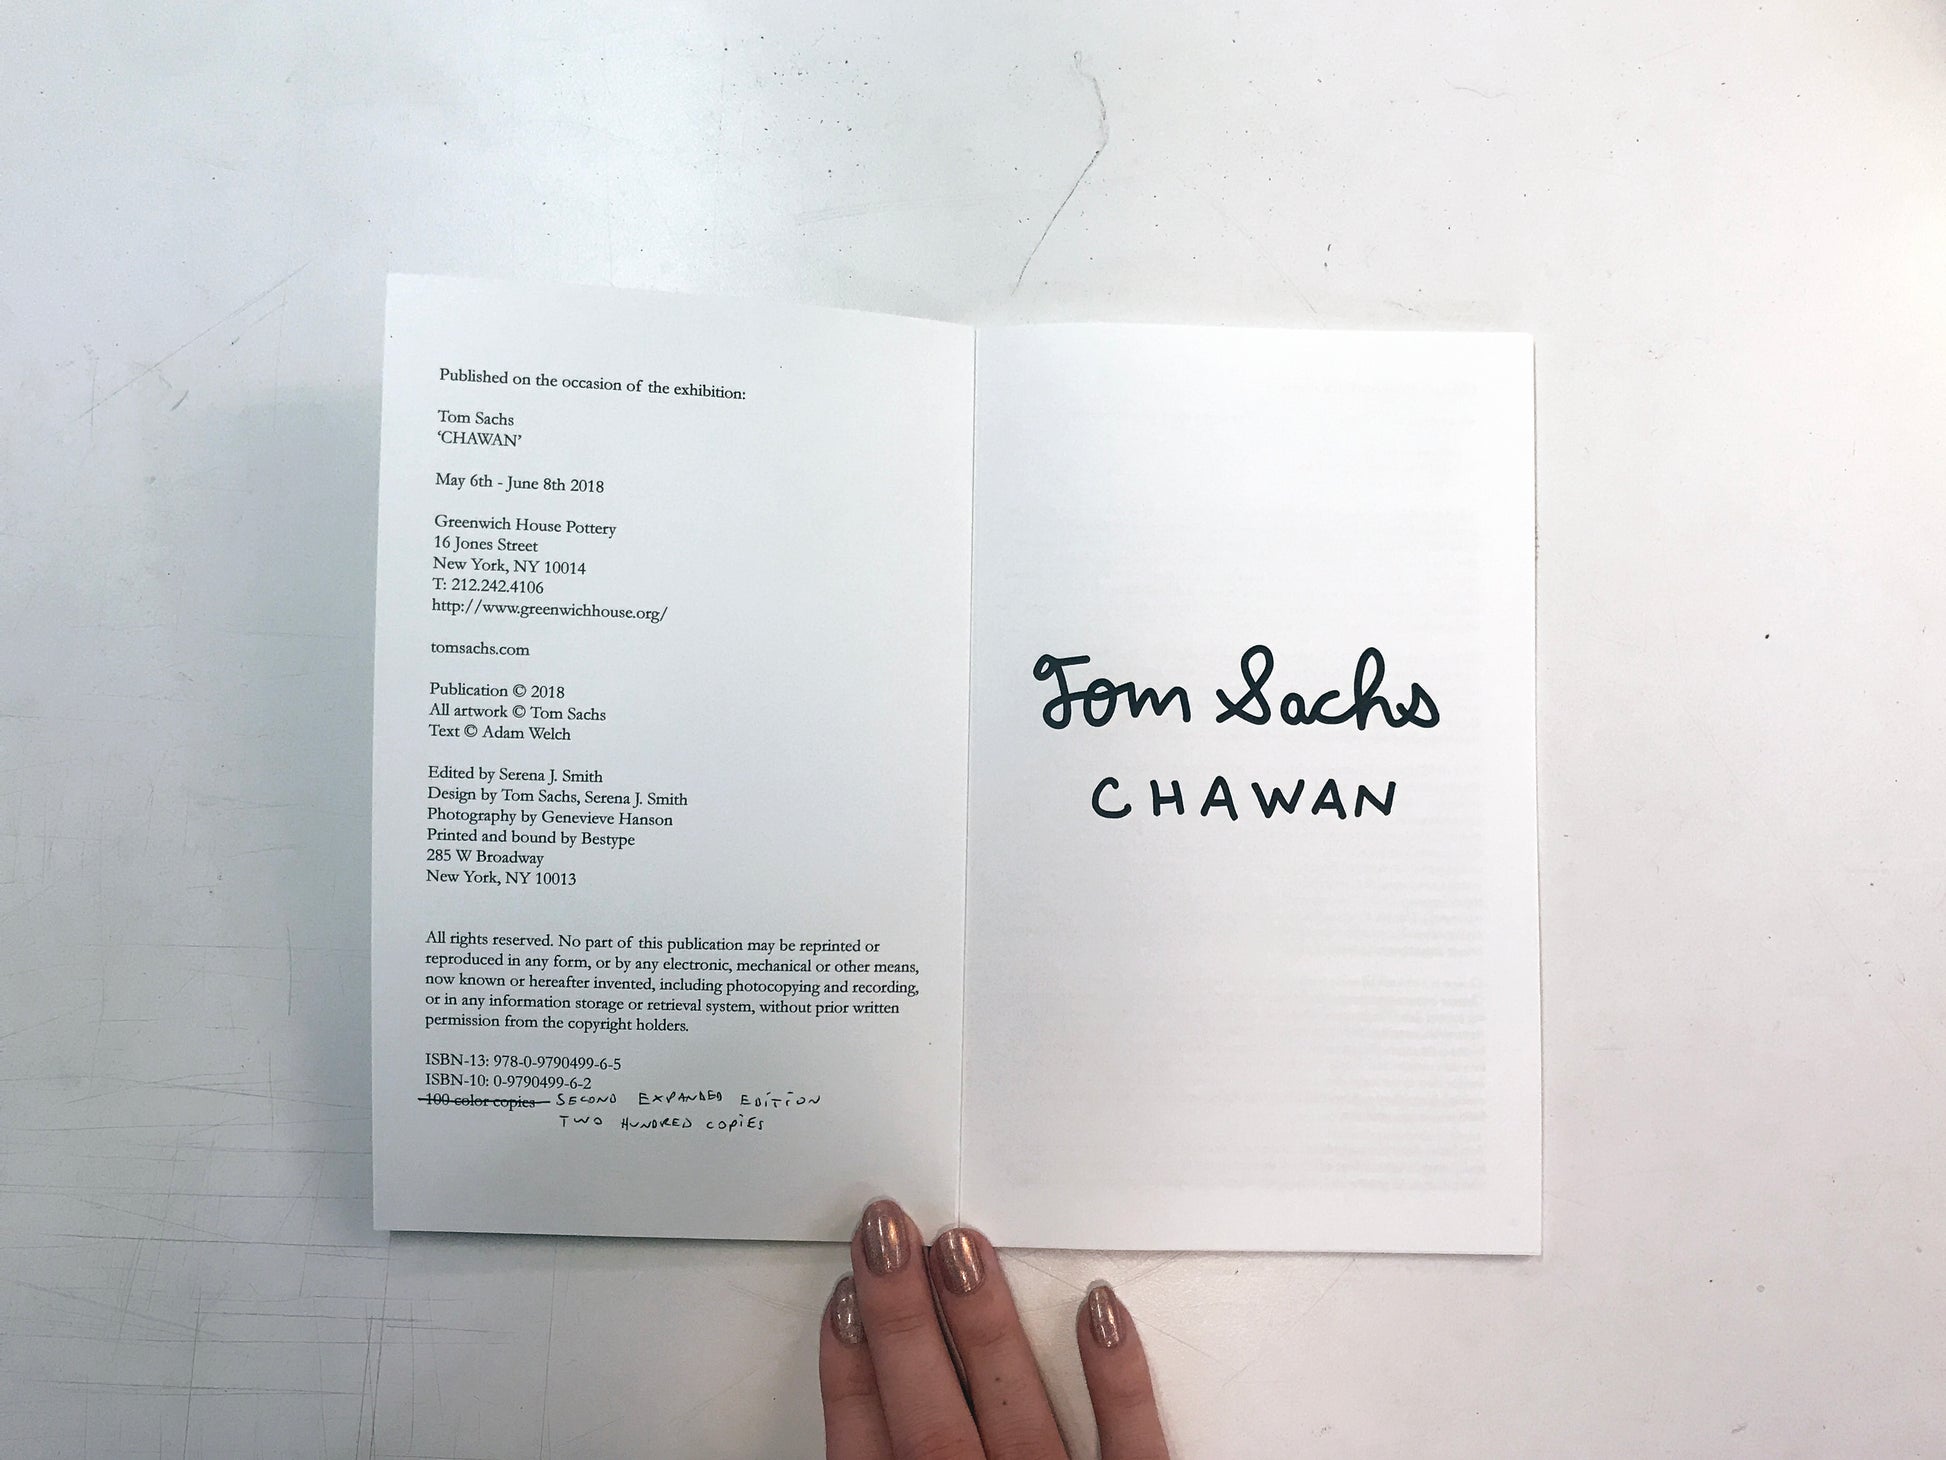 Published on the occasion of the exhibition:
Tom Sachs
‘CHAWAN’
May 6th - June 8th 2018
Greenwich House Pottery
16 Jones Street
New York, NY 10014
T: 212.242.4106
http://www.greenwichhouse.org/
tomsachs.com
Publication © 2018
All artwork © Tom Sachs
Text © Adam Welch
Edited by Serena J. Smith
Design by Tom Sachs, Serena J. Smith
Photography by Genevieve Hanson
Printed and bound by Bestype
285 W Broadway
New York, NY 10013
All rights reserved. No part of this publication may be reprinted or
reproduced in any form, or by any electronic, mechanical or other means,
now known or hereafter invented, including photocopying and recording,
or in any information storage or retrieval system, without prior written
permission from the copyright holders.
ISBN-13: 978-0-9790499-6-5
ISBN-10: 0-9790499-6-2
100 color copies SECOND EXPANDED EDITION
TWO HUNDRED COPIES
Tom Sachs
CHAWAN